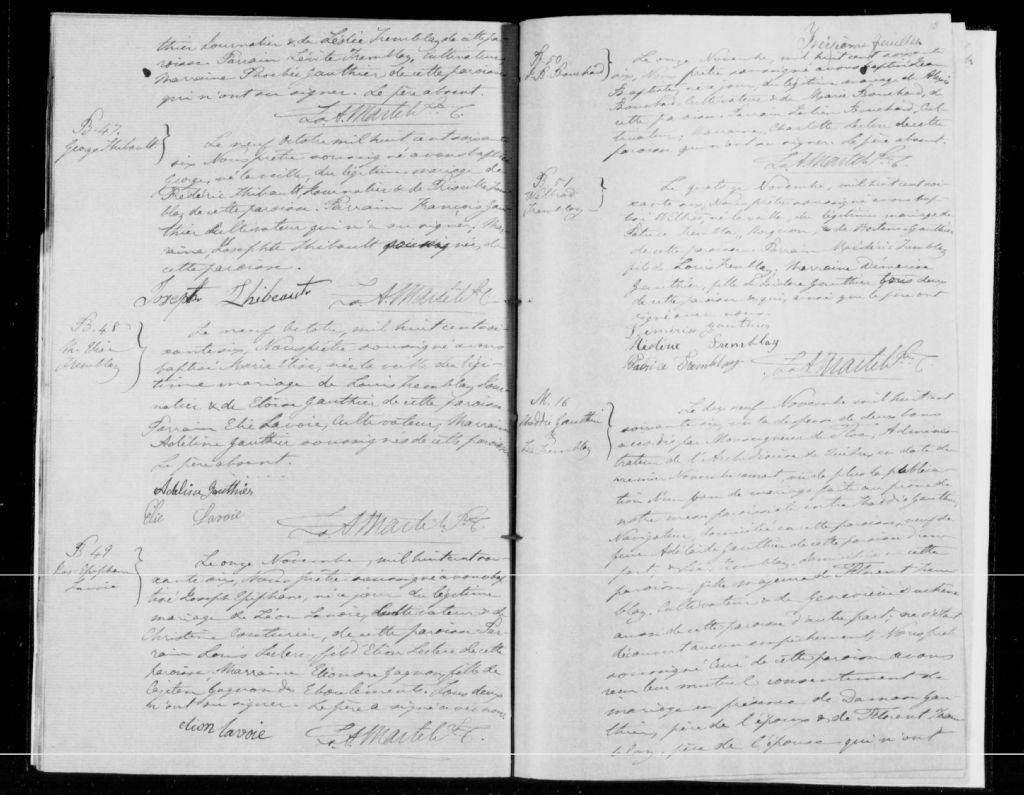 thier Journalier & de Leslie Tremblay de cette pa-
roisse Parrain Lévite Tremblay, Cultivateur
Marraine Phoebée Gauthier, de cette paroisse
qui n'ont su signer. Le père absent.
L. A. Martel Ptre C.
B. 47.
George Thibault
Le neuf Octobre mil huit cent soixante
six Nous prêtre soussigné avons baptisé
George, né la veille, du légitime mariage de
Frédéric Thibault, Journalier & de Priscille Trem-
blay de cette paroisse. Parrain François Gau-
thier Cultivateur qui n'a su signer, Mar-
raine, Josephte Thibault soussignée, de
cette paroisse.
Joseph Thibeault
L. A. Martel Ptre C.
B. 48
M. Elise
Tremblay
Le neuf Octobre, mil huit cent soi-
xante six, Nous prêtre soussigné avons
baptisé Marie Elise, née la veille du légi-
time mariage de Louis Tremblay, Jour-
nalier & de Eloise Gauthier de cette paroisse
Parrain Elie Lavoie, Cultivateur, Marraine
Adeline Gauthier soussignés de cette paroisse
Le père absent.
Adeline Gauthier
Elie Lavoie
L. A. Martel Ptre C.
B 49
Jos. Epiphane
Lavoie
Le onze Novembre, mil huit cent soi-
xante six, Nous prêtre soussigné avons bap-
tisé Joseph Epiphane, né ce jour du légitime
mariage de Léon Lavoie, Cultivateur & de
Christine Couturier, de cette paroisse Par-
rain Louis Leclerc, fils d'Elion Leclerc de cette
paroisse, Marraine Eléonore Gagnon, fille de
Cajetan Gagnon des Eboulements. Tous deux
n'ont su signer. Le père a signé avec nous
elion lavoie
L. A. Martel Ptre C.
Troisième feuillet
B. 50
J. B. Bouchard
Le onze Novembre, mil huit cent soixante
six, Nous prêtre soussigné avons baptisé Jean
Baptiste, né ce jour, du légitime mariage de
Bouchard, Cultivateur & de Marie Bouchard, de
cette paroisse. Parrain Bouchard, Cul-
tivateur; Marraine, Charlotte Leclerc de cette
paroisse qui n'ont su signer. Le père absent.
L. A. Martel Ptre C.
B. 51
Wilbrod
Tremblay
Le quatorze Novembre, mil huit cent soi-
xante six, Nous prêtre soussigné avons bap-
tisé né la veille, du légitime mariage de
Patrice Tremblay, & de Gauthier
de cette paroisse. Parrain Médéric Tremblay
fils de Louis Tremblay; Marraine Démérise
Gauthier, fille de Isidore Gauthier tous deux
de cette paroisse & qui, ainsi que le père ont
signé avec nous.
Démérise Gauthier
Tremblay
Patrice Tremblay
L. A. Martel Ptre C.
M. 16
Thaddé Gauthier
&
Tremblay
Le dix neuf Novembre mil huit cent
soixante six, vu la dispense de deux bans
accordée par Monseigneur de Tloa, Adminis-
trateur de l'Archidiocèse de Québec, en date du
premier Novembre courant, vu de plus la publica-
tion d'un ban de mariage fait au prône de
notre messe paroissiale entre Thaddé Gauthier,
Navigateur, domicilié en cette paroisse, veuf de
feue Adelaide Gauthier de cette paroisse d'une
part & Tremblay, domiciliée en cette
paroisse, fille majeure de Florent Trem-
blay, Cultivateur & de Geneviève Duchesne
aussi de cette paroisse d'autre part; ne s'étant
découvert aucun empêchement, Nous prêtre
soussigné Curé de cette paroisse avons
reçu leur mutuel consentement de
mariage en présence de Damase Gau-
thier, père de l'époux & de Florent Trem-
blay, père de l'épouse qui n'ont